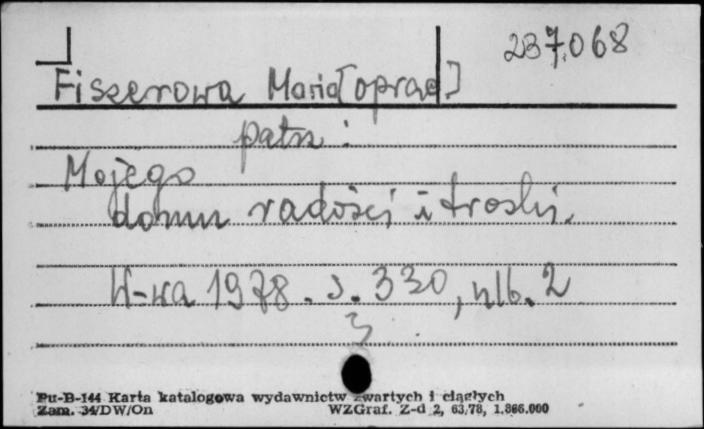 237.068
Fiszerowa Maria [oprac]
patrz:
Mojego
domu radości i troski.
W-wa 1978. s. 330, nlb. 2
3
Pu-B-144 Karta katalogowa wydawnictw zwartych i ciągłych
Zam. 34/DW/On WZGraf. Z-d 2, 63/78, 1.866.000